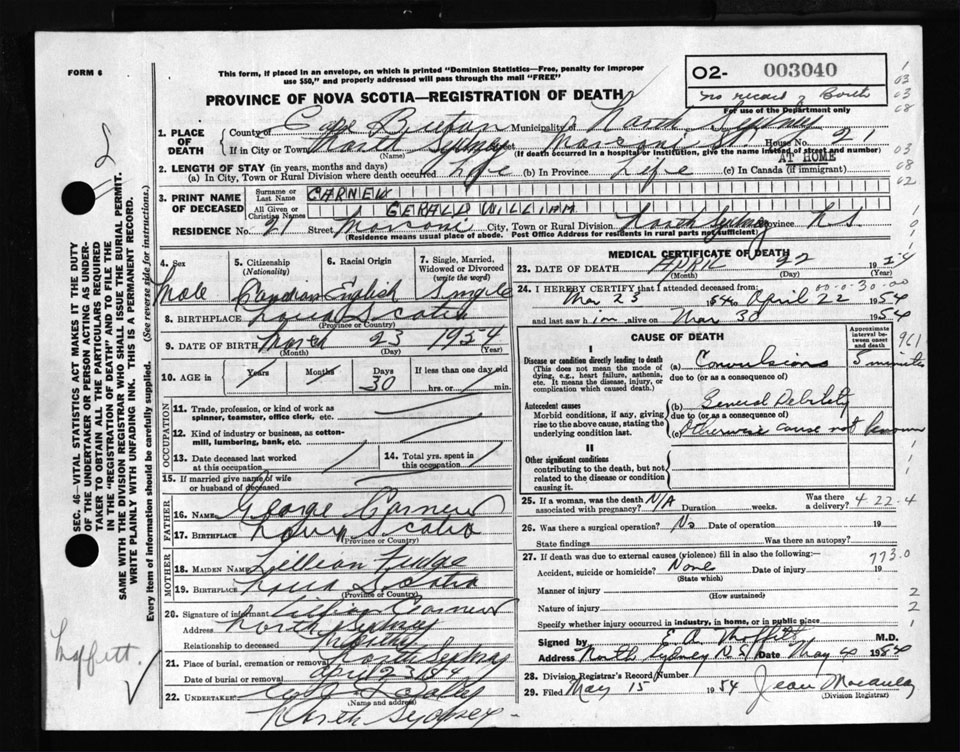 FORM 6
This form, if placed in an envelope, on which is printed "Dominion Statistics—Free, penalty for improper
use $50," and properly addressed will pass through the mail "FREE"
O2- 003040
no record of Birth
For use of the Department only
PROVINCE OF NOVA SCOTIA—REGISTRATION OF DEATH
1. PLACE OF DEATH
County of Cape Breton Municipality of North Sydney
If in City or Town North Sydney Street Marconi St. House No. 21
(Name) (If death occurred in a hospital or institution, give the name instead of street and number)
AT HOME
2. LENGTH OF STAY (in years, months and days)
(a) In City, Town or Rural Division where death occurred Life (b) In Province Life (c) In Canada (if immigrant)
3. PRINT NAME OF DECEASED
Surname or Last Name CARNEW
All Given or Christian Names GERALD WILLIAM
RESIDENCE No. 21 Street Marconi City, Town or Rural Division North Sydney Province N.S.
(Residence means usual place of abode. Post Office Address for residents in rural parts not sufficient)
4. Sex Male
5. Citizenship (Nationality) Canadian
6. Racial Origin English
7. Single, Married, Widowed or Divorced (write the word) Single
8. BIRTHPLACE Nova Scotia
(Province or Country)
9. DATE OF BIRTH March 23 1954
(Month) (Day) (Year)
10. AGE in Years Months Days 30 If less than one day old hrs. or min.
OCCUPATION
11. Trade, profession, or kind of work as spinner, teamster, office clerk, etc.
12. Kind of industry or business, as cotton-mill, lumbering, bank, etc.
13. Date deceased last worked at this occupation
14. Total yrs. spent in this occupation
15. If married give name of wife or husband of deceased
FATHER
16. Name George Carnew
17. BIRTHPLACE Nova Scotia
(Province or Country)
MOTHER
18. MAIDEN NAME Lillian Fudge
19. BIRTHPLACE Nova Scotia
(Province or Country)
20. Signature of informant Lillian Carnew
Address North Sydney
Relationship to deceased Mother
21. Place of burial, cremation or removal North Sydney
Date of burial or removal April 23
22. UNDERTAKER
(Name and address)
North Sydney
MEDICAL CERTIFICATE OF DEATH
23. DATE OF DEATH APRIL 22 1954
(Month) (Day) (Year)
24. I HEREBY CERTIFY that I attended deceased from:
Mar 23 1954 to April 22 1954
and last saw him alive on Mar 30 1954
CAUSE OF DEATH
Approximate interval between onset and death
I
Disease or condition directly leading to death
(This does not mean the mode of dying, e.g., heart failure, asthenia, etc. It means the disease, injury, or complication which caused death.)
(a) Convulsions 5 minutes
due to (or as a consequence of)
Antecedent causes
Morbid conditions, if any, giving rise to the above cause, stating the underlying condition last.
(b) General Debility
due to (or as a consequence of)
(c) Otherwise cause not known
II
Other significant conditions
contributing to the death, but not related to the disease or condition causing it.
25. If a woman, was the death associated with pregnancy? N/A Duration weeks. Was there a delivery?
4-22-4
26. Was there a surgical operation? No Date of operation 19
State findings Was there an autopsy?
27. If death was due to external causes (violence) fill in also the following:—
773.0
Accident, suicide or homicide? None Date of injury 19
(State which)
Manner of injury
(How sustained)
Nature of injury
Specify whether injury occurred in industry, in home, or in public place
Signed by E. A. Moffitt M.D.
Address North Sydney N.S. Date May 4 1954
28. Division Registrar's Record Number
29. Filed May 15 1954 Jean Macaulay
(Division Registrar)
SEC. 46—VITAL STATISTICS ACT MAKES IT THE DUTY
OF THE UNDERTAKER OR PERSON ACTING AS UNDER-
TAKER TO OBTAIN ALL THE PARTICULARS REQUIRED
IN THE "REGISTRATION OF DEATH" AND TO FILE THE
SAME WITH THE DIVISION REGISTRAR WHO SHALL ISSUE THE BURIAL PERMIT.
WRITE PLAINLY WITH UNFADING INK. THIS IS A PERMANENT RECORD.
Every item of information should be carefully supplied. (See reverse side for instructions.)
Moffett.